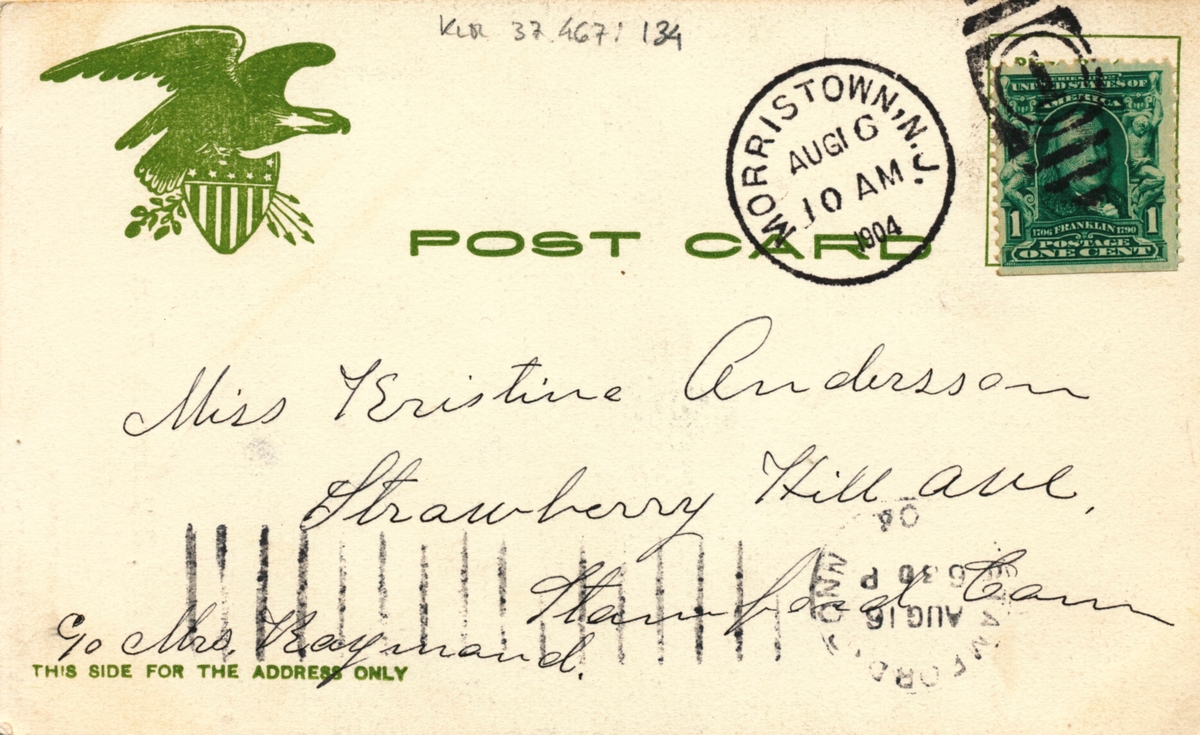 KLR 37.467: 134
MORRISTOWN, N.J.
AUG 16
10 AM
1904
SERIES 1902
UNITED STATES OF
AMERICA
1 1
1706 FRANKLIN 1790
POSTAGE
ONE CENT
POST CARD
Miss Kristine Andersson
Strawberry Hill ave,
Stamford Conn
c/o Mrs. Raymond.
THIS SIDE FOR THE ADDRESS ONLY
STAMFORD CONN
AUG 16
6.30 P
04